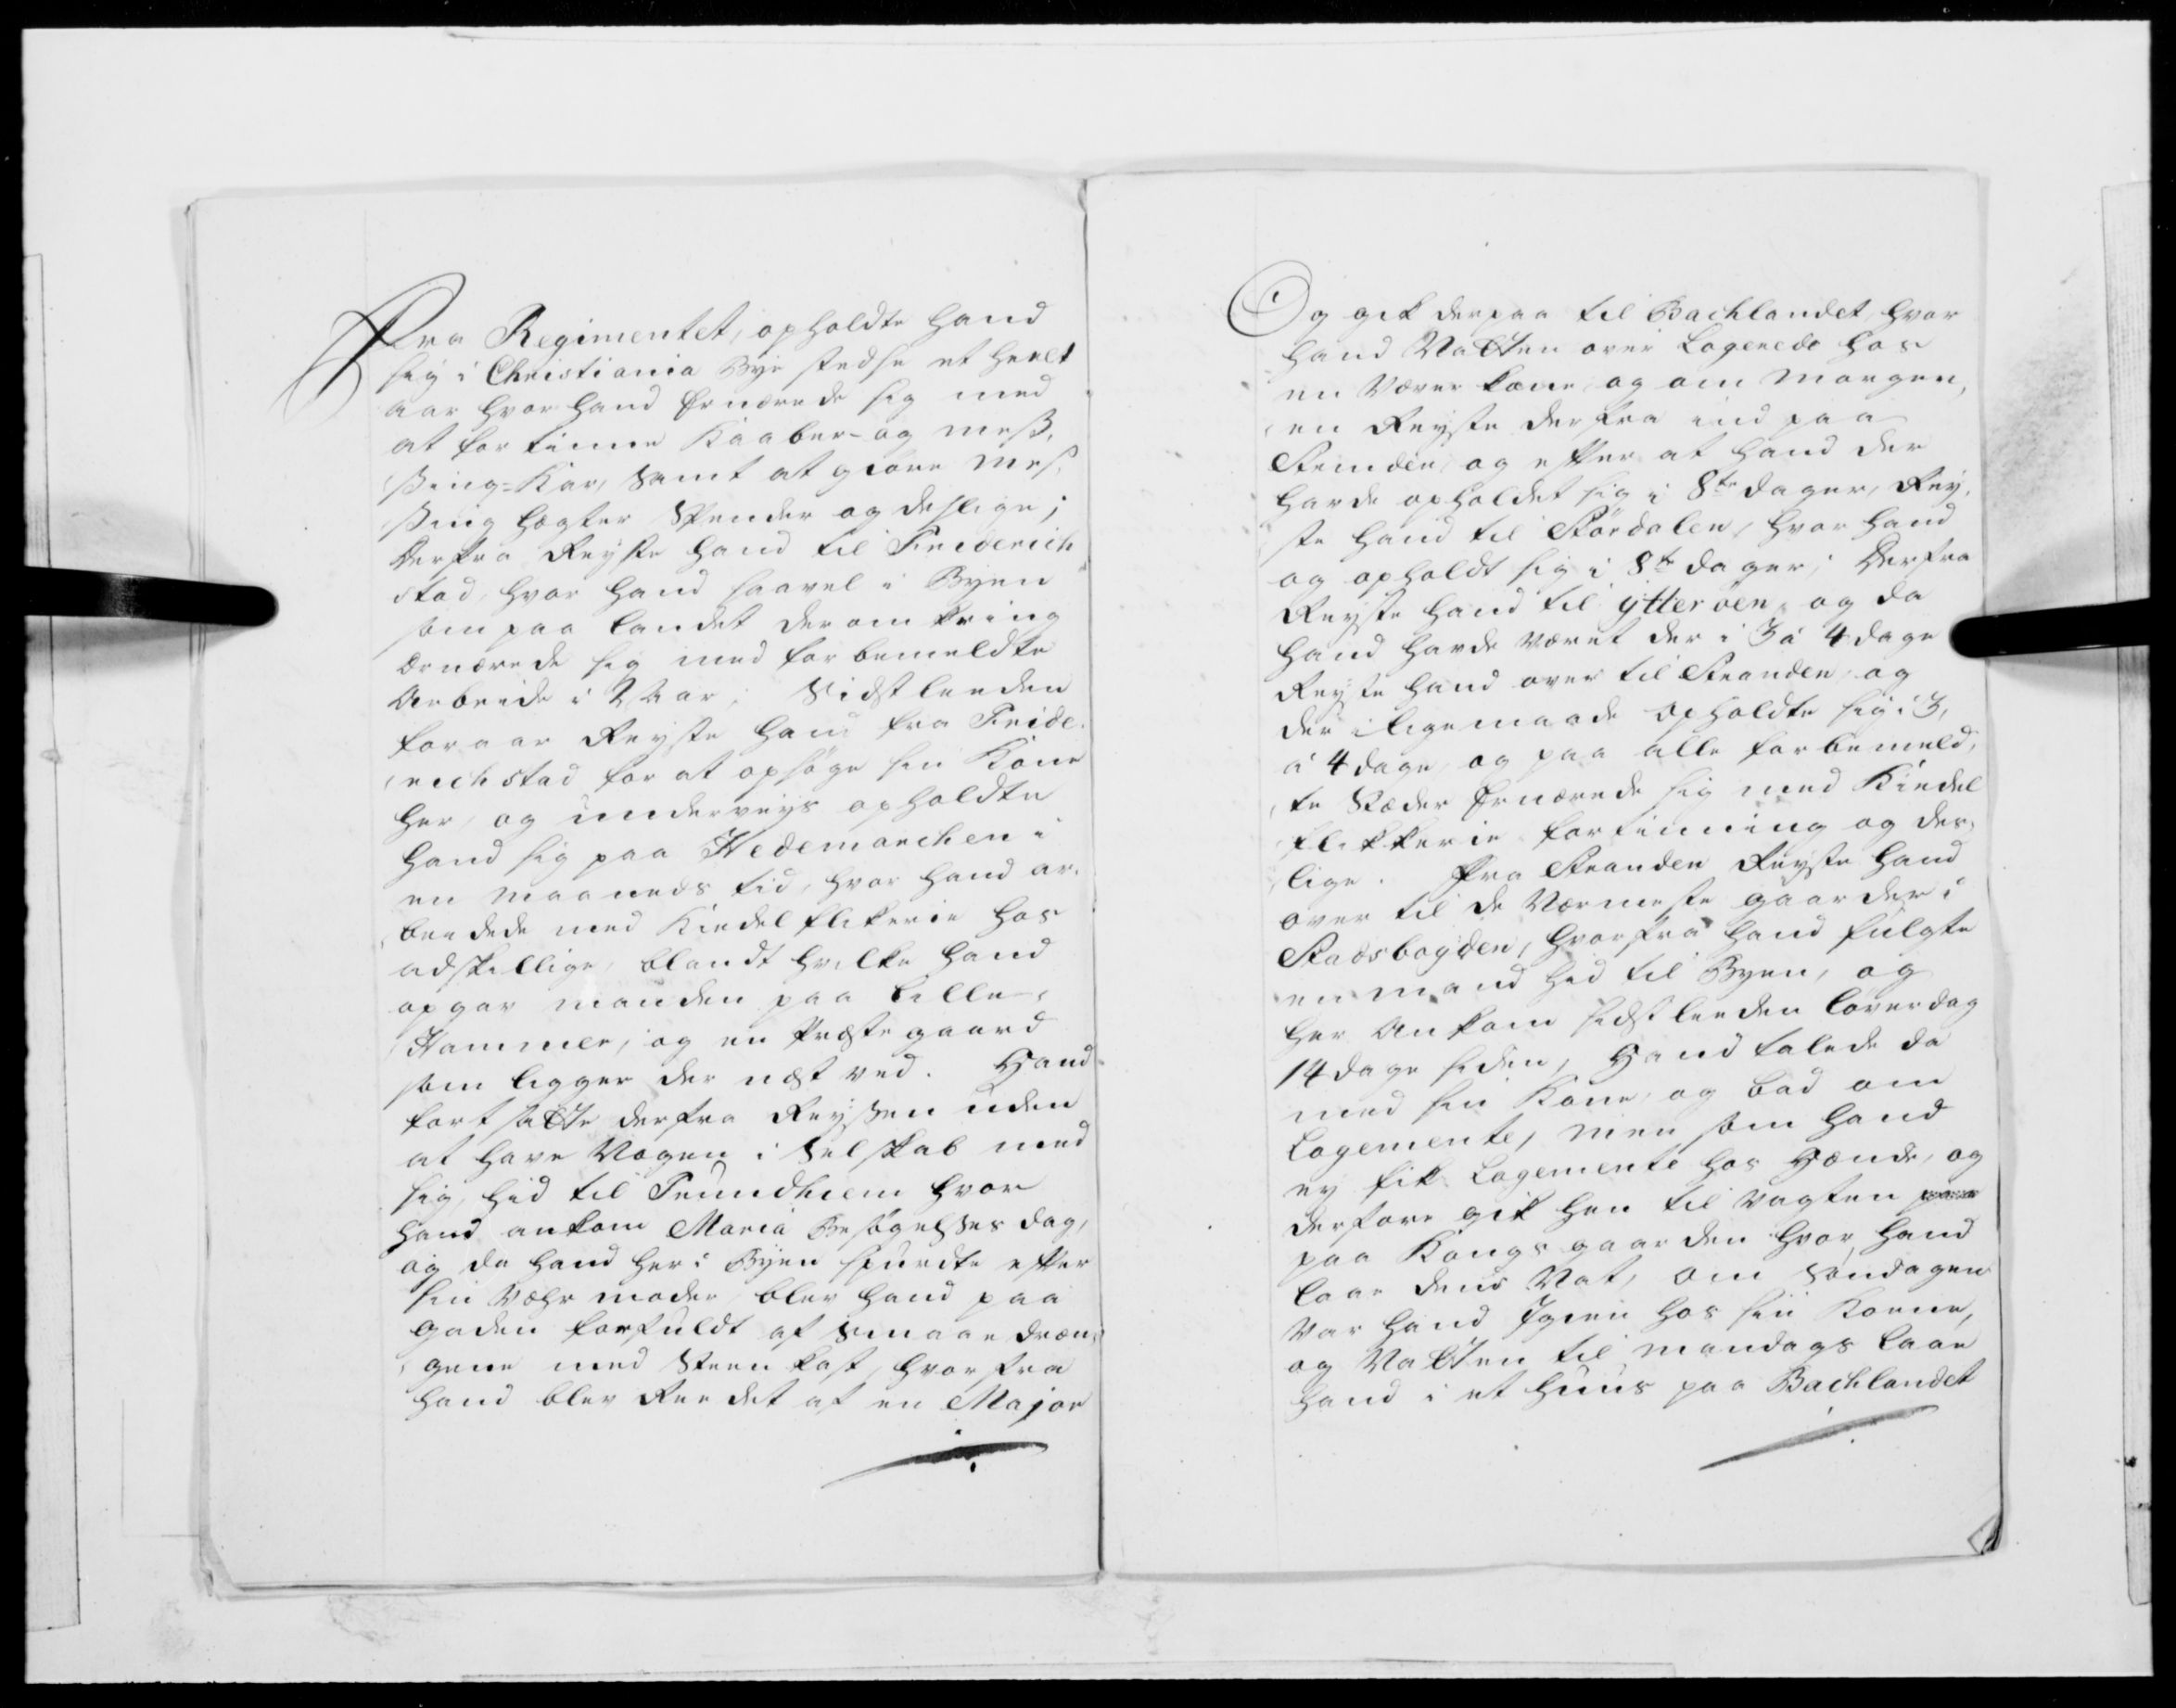 Fra Regimentet, opholdte hand
sig i Christiania Bye stedse et heelt
aar hvor hand Ernærede sig med
at fortinne Kaaber- og mes-
sing-Kar, samt at giøre mes-
sing hægter Spender og deslige;
Derfra Reyste hand til Friderich
stad, hvor hand saavel i Byen
som paa landet deromkring
Ernærede sig med forbemeldte
Arbeide i 2 Aar, Sidstleeden
foraar Reyste hand fra Fride-
richstad for at opsøge sin Kone
her, og underveys opholdte
hand sig paa Hedemarchen i
en maaneds tid, hvor hand ar-
beedede med Kiedelflikerie hos
adskillige, blandt hvilke hand
opgav manden paa Lille-
Hammer, og en Præstegaard
som ligger der næst ved. Hand
fortsatte derfra Reyssen uden
at have Nogen i Selskab med
sig, hid til Trundhiem hvor
hand ankom Maria Besøgelses dag,
og da hand her i Byen spurdte efter
sin Væhrmoder, blev hand paa
gaden forfuldt af smaae dræn-
gene med Steenkast, hvorfra
hand blev Reedet af en Major
Og gik derpaa til Bachlandet, hvor
hand Natten over Logerede hos
en Væverkone, og om Morgen-
en Reyste derfra ind paa
Strinden, og efter at hand der
havde opholdet sig i 8te dager, Rey-
ste hand til Størdalen, hvor hand
og opholdt sig i 8te dager, Derfra
Reyste hand til ytterøen, og da
hand havde været der i 3 á 4 dage
Reyste hand over til Stranden, og
der iligemaade opholdte sig i 3,
á 4 dage, og paa alle forbemeld-
te Stæder Ernærede sig med Kiedel
flikkerie fortinning og des-
lige. Fra Stranden Reyste hand
over til de Nærmeste gaarder i
Stadsbogden, hvorfra hand fulgte
en mand hid til Byen, og
her Ankom sidstleeden løverdag
14 dage siden, Hand talede da
med sin Kone, og bad om
Logemente, men som hand
ey fik Logemente hos Hænde, og
derfore gik hen til vagten
paa Kongsgaarden hvor hand
laae dend Nat, om Søndagen
var hand Igien hos sin Koene,
og Natten til mandags laae
hand i et huus paa Bachlandet